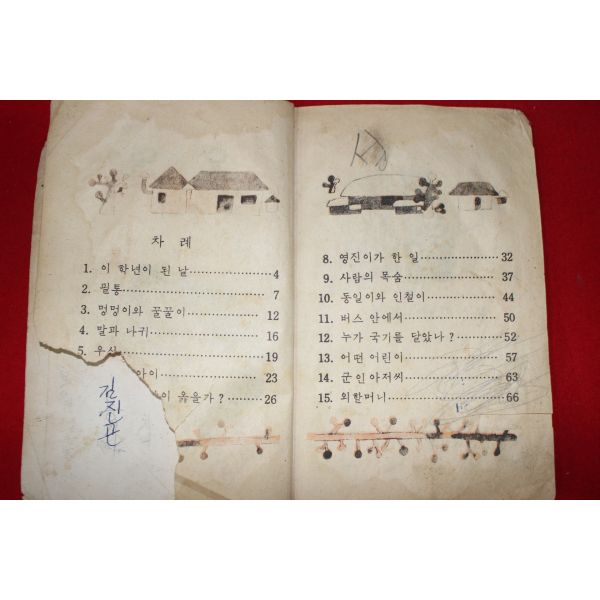 차 례
1. 이 학년이 된 날 4
2. 필통 7
3. 멍멍이와 꿀꿀이 12
4. 말과 나귀 16
5. 우산 19
아이 23
이 옳을가? 26
8. 영진이가 한 일 32
9. 사람의 목숨 37
10. 동일이와 인철이 44
11. 버스 안에서 50
12. 누가 국기를 달았나? 52
13. 어떤 어린이 57
14. 군인아저씨 63
15. 외할머니 66